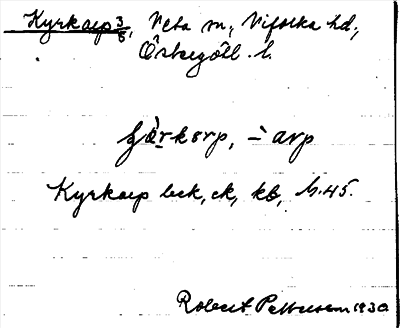 Kyrkarp 3/8, Veta sn, Vifolka hd,
Östergötl. l.
çàrkarp, -̀ arp
Kyrkarp bek, ek, kb, h. 45.
Robert Pettersson 1930